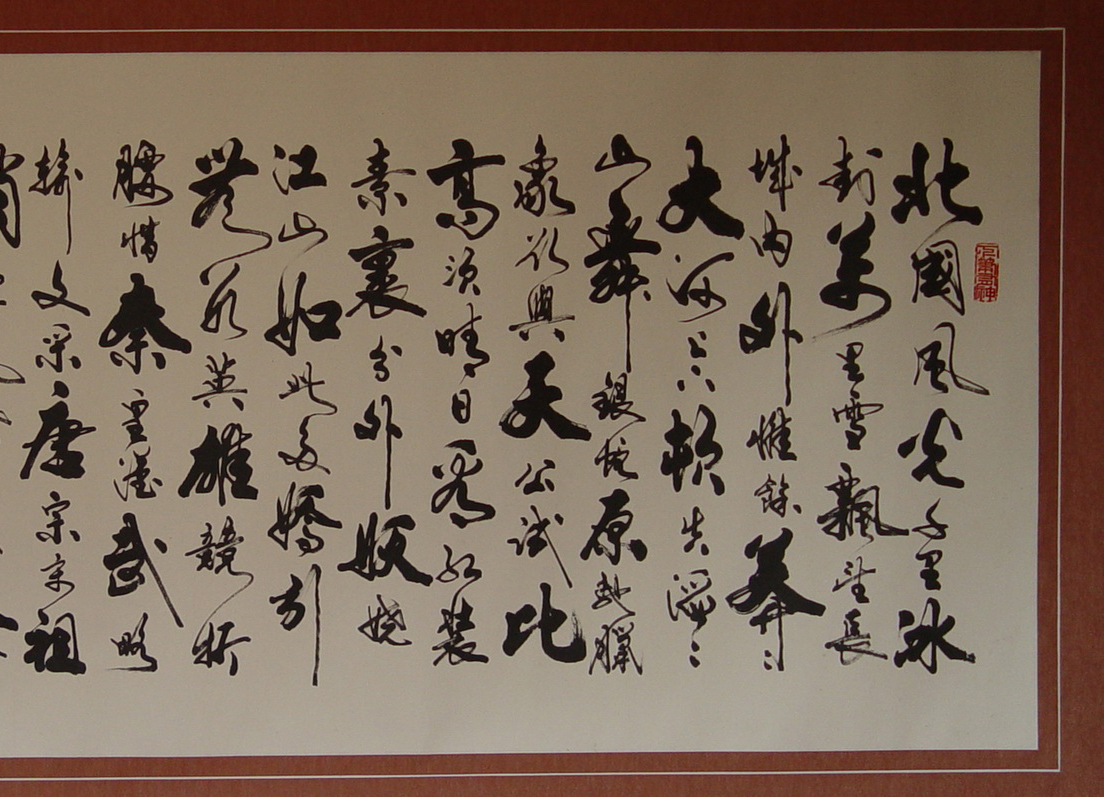 北國風光千里冰
封萬里雪飄望長
城內外惟餘莽〻
大河上下頓失滔〻
山舞銀蛇原馳臘
象欲與天公試比
高須晴日看紅裝
素裹分外妖嬈
江山如此多嬌引
無數英雄競折
腰惜秦皇漢武略
輸文采唐宗宋祖